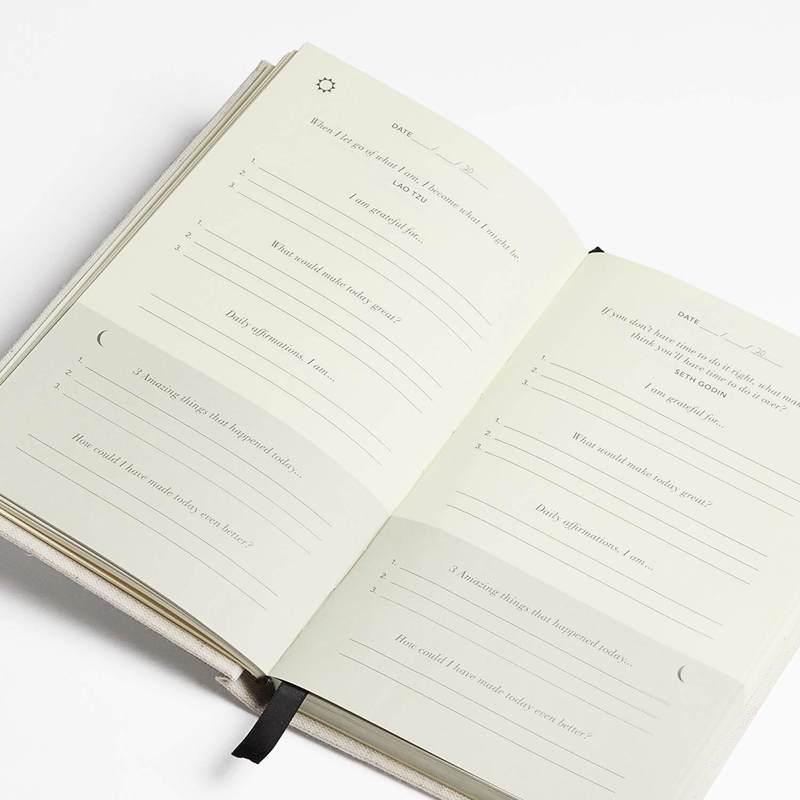 DATE___/___/20___
When I let go of what I am, I become what I might be.
LAO TZU
I am grateful for...
1.
2.
3.
What would make today great?
1.
2.
3.
Daily affirmations. I am...
3 Amazing things that happened today...
1.
2.
3.
How could I have made today even better?
DATE___/___/20___
If you don't have time to do it right, what mak
think you'll have time to do it over?
SETH GODIN
I am grateful for...
1.
2.
3.
What would make today great?
1.
2.
3.
Daily affirmations. I am...
3 Amazing things that happened today...
1.
2.
3.
How could I have made today even better?